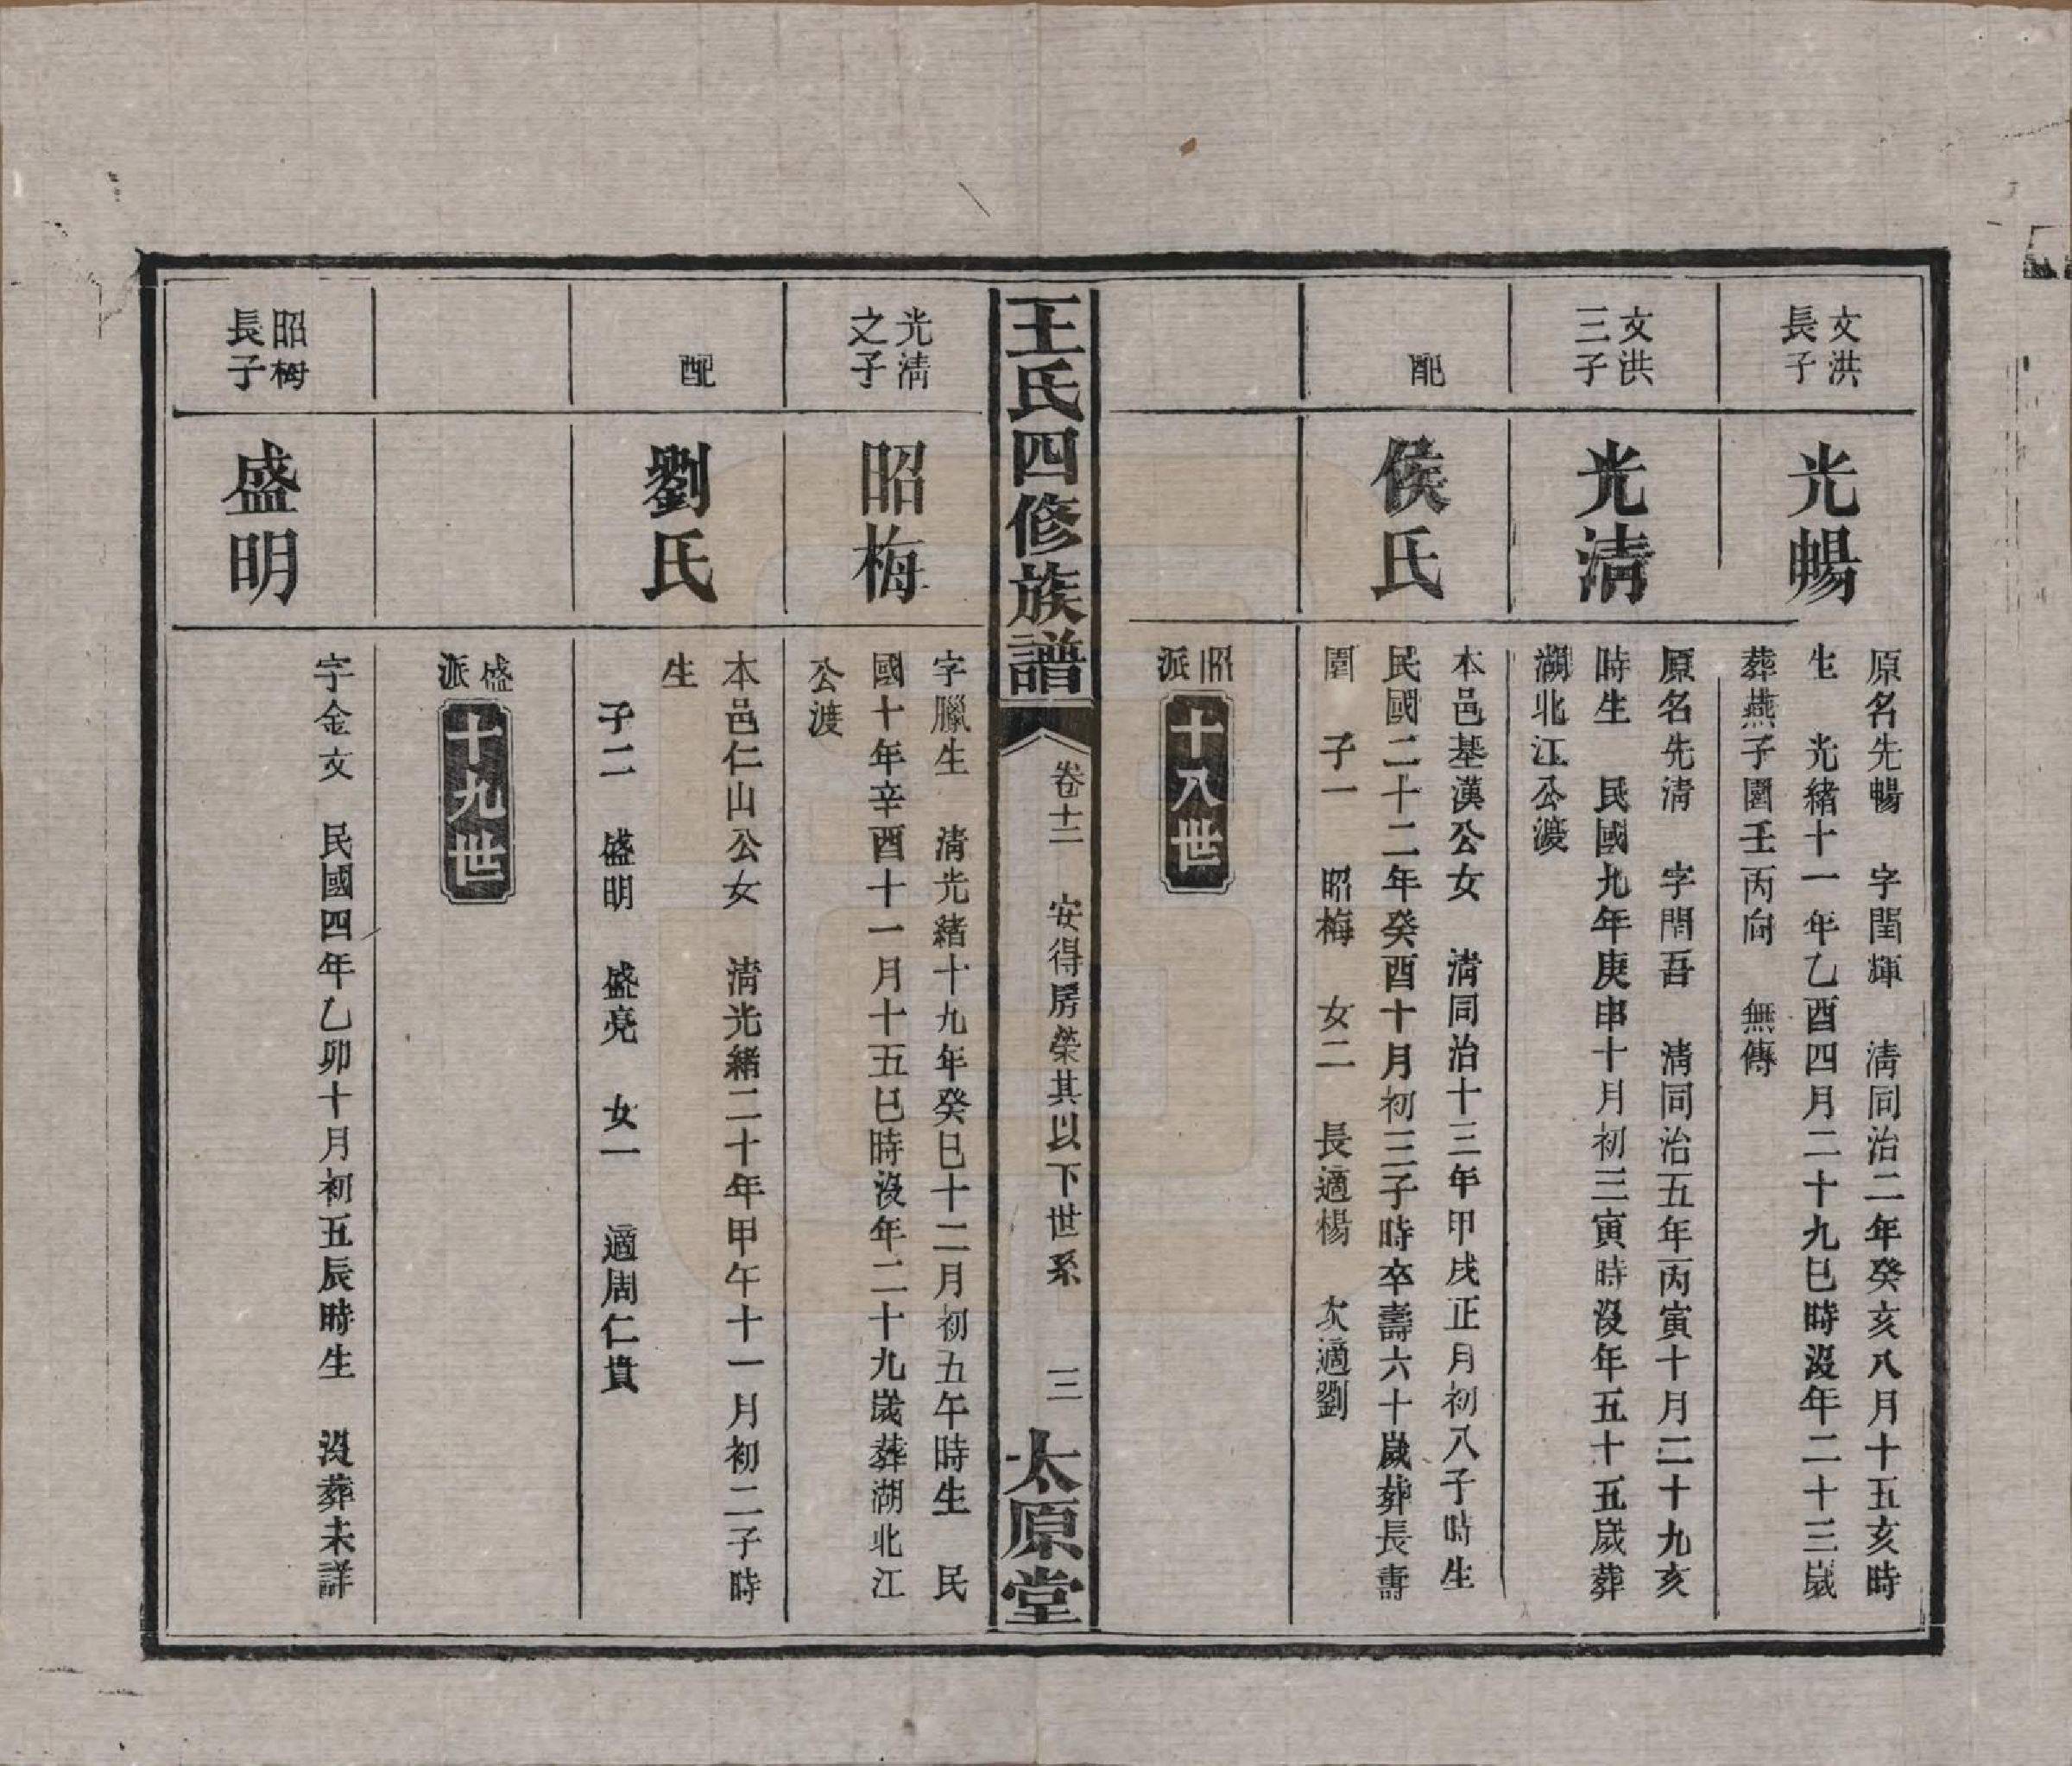 文洪
長子
光暢
原名先暢　字閏輝　清同治二年癸亥八月十五亥時
生　光緒十一年乙酉四月二十九巳時沒年二十三歲
葬燕子園壬丙向　無傳
文洪
三子
光清
原名先清　字閏吾　清同治五年丙寅十月二十九亥
時生　民國九年庚申十月初三寅時沒年五十五歲葬
湖北江公渡
配
侯氏
本邑基漢公女　清同治十三年甲戌正月初八子時生
民國二十二年癸酉十月初三子時卒壽六十歲葬長壽
園　子一　昭梅　女二　長適楊　次適劉
昭
派
十八世
王氏四修族譜
卷十二　安得房榮其以下世系　三
太原堂
光清
之子
昭梅
字臘生　清光緒十九年癸巳十二月初五午時生　民
國十年辛酉十一月十五巳時沒年二十九歲葬湖北江
公渡
配
劉氏
本邑仁山公女　清光緒二十年甲午十一月初二子時
生
子二　盛明　盛亮　女一　適周仁貴
盛
派
十九世
昭梅
長子
盛明
字金文　民國四年乙卯十月初五辰時生　沒葬未詳